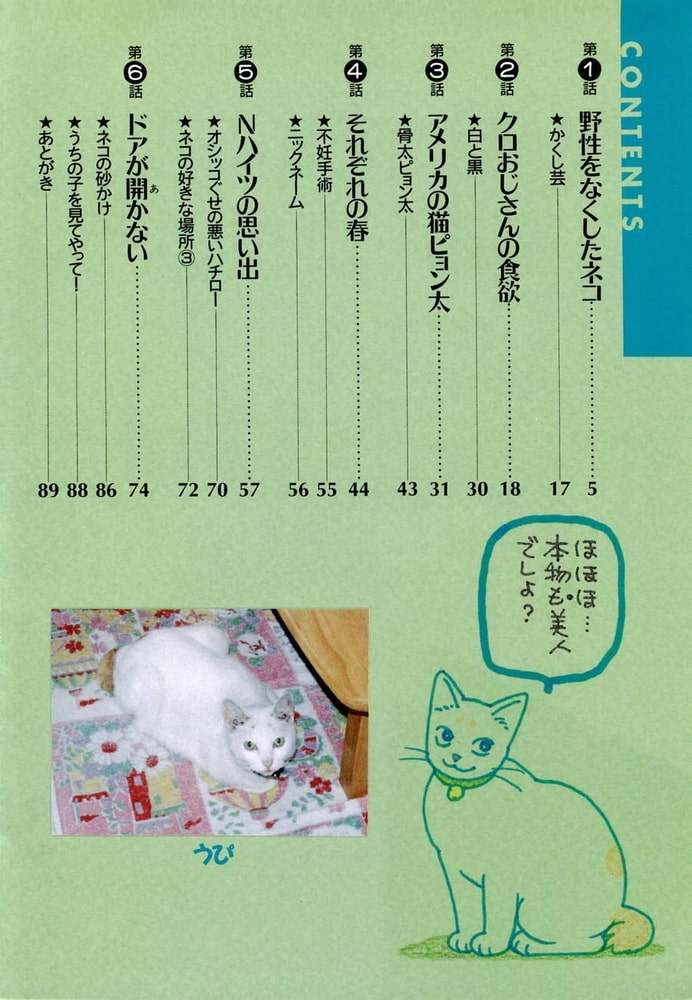 CONTENTS
第1話
野性をなくしたネコ……5
★かくし芸 17
第2話
クロおじさんの食欲……18
★白と黒 30
第3話
アメリカの猫ピョン太……31
★骨太ピョン太 43
第4話
それぞれの春……44
★不妊手術 55
★ニックネーム 56
第5話
Nハイツの思い出……57
★オシッコぐせの悪いハチロー 70
★ネコの好きな場所③ 72
第6話
ドアが開かない……74
あ
★ネコの砂かけ 86
★うちの子を見てやって! 88
★あとがき 89
ほほほ…
本物も美人
でしょ?
うぴ